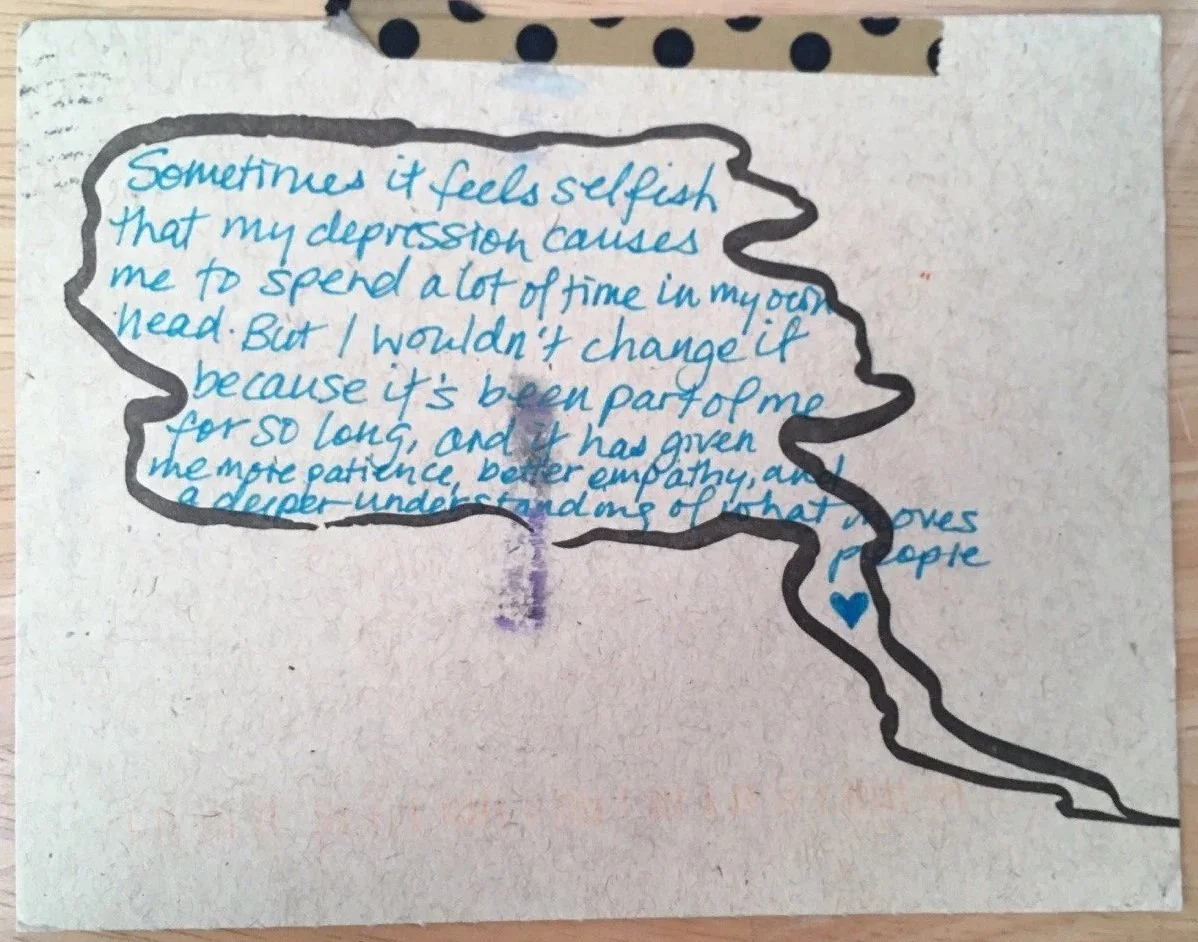 Sometimes it feels selfish
that my depression causes
me to spend a lot of time in my own
head. But I wouldn't change it
because it's been part of me
for so long, and it has given
me more patience, better empathy, and
a deeper understanding of what moves
people